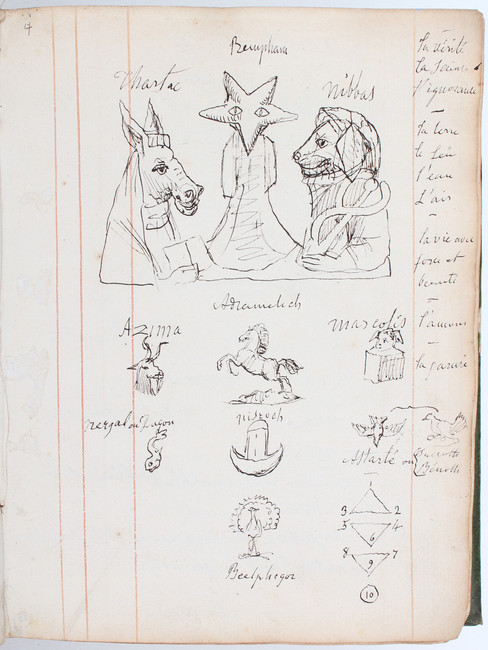 4
Rempham
Thartac
Nibbas
la vérité
la Science
l'ignorance
la terre
le feu
l'eau
l'air
la vie avec
force et
beauté
l'amour
la parure
Adramelech
Azima
Marcolis
Nergal ou Dagon
Nisroch
Astarté ou
Succoth
Bénoth
Beelphegor
3 2
5 4
6
8 7
9
10